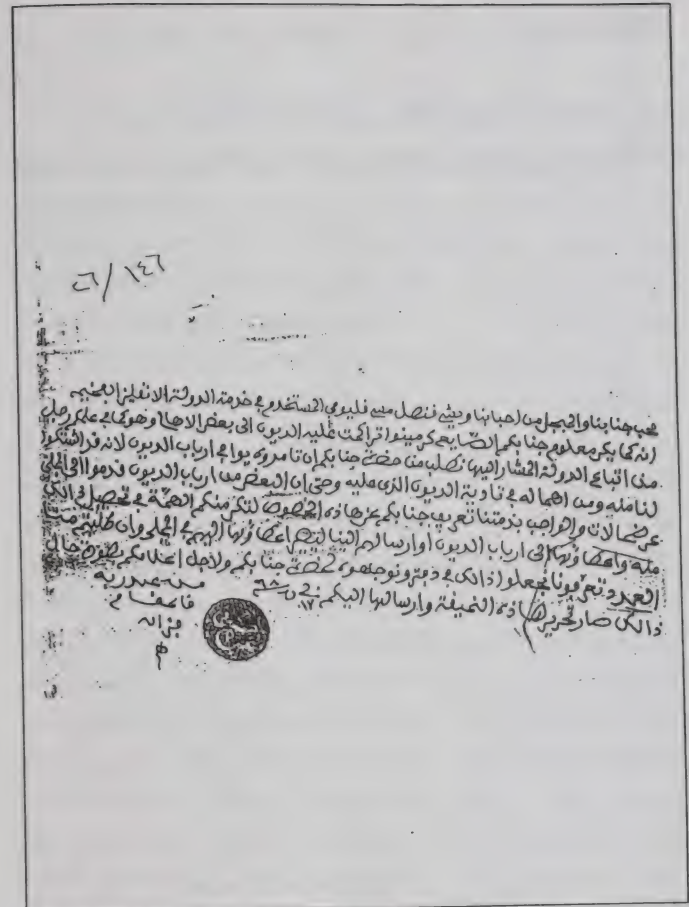 ١٤٦/٢٦
محب جنابنا والمبجل من احبابنا ويثي قنصل مسي فليومي المستخدم في خدمة الدولة الانقليز الفخيمه
انه كما يكن معلوم جنابكم تراكمت عليه الديون الى بعض الاهالي وهو كما في علمكم رجل
من اتباع الدولة المشار اليها نطلب من حضرة جنابكم ان تامروه يوافي ارباب الديون لانه قد اشتكوا
لنا منه ومن اهماله في تادية الديون الذي عليه وحتى ان البعض من ارباب الديون قدموا الى المجلس
عرضحالات والواجب بذمتنا تعريف جنابكم عن هاذه الخصوص لتكن منكم الهمة في تحصيل ذالك
منه واعطاؤها الى ارباب الديون او ارسالهم الينا ليتم اعطاؤها اليهم في المجلس وان طلبتم منا
العدد تعرفونا نجعلوا ذالك في دفتر ونوجهوه لحضرة جنابكم ولاجل اعلامكم بصورة حال
ذالك صار تحرير هاذه النميقة وارسالها اليكم في
من عبد ربه
قائمقام